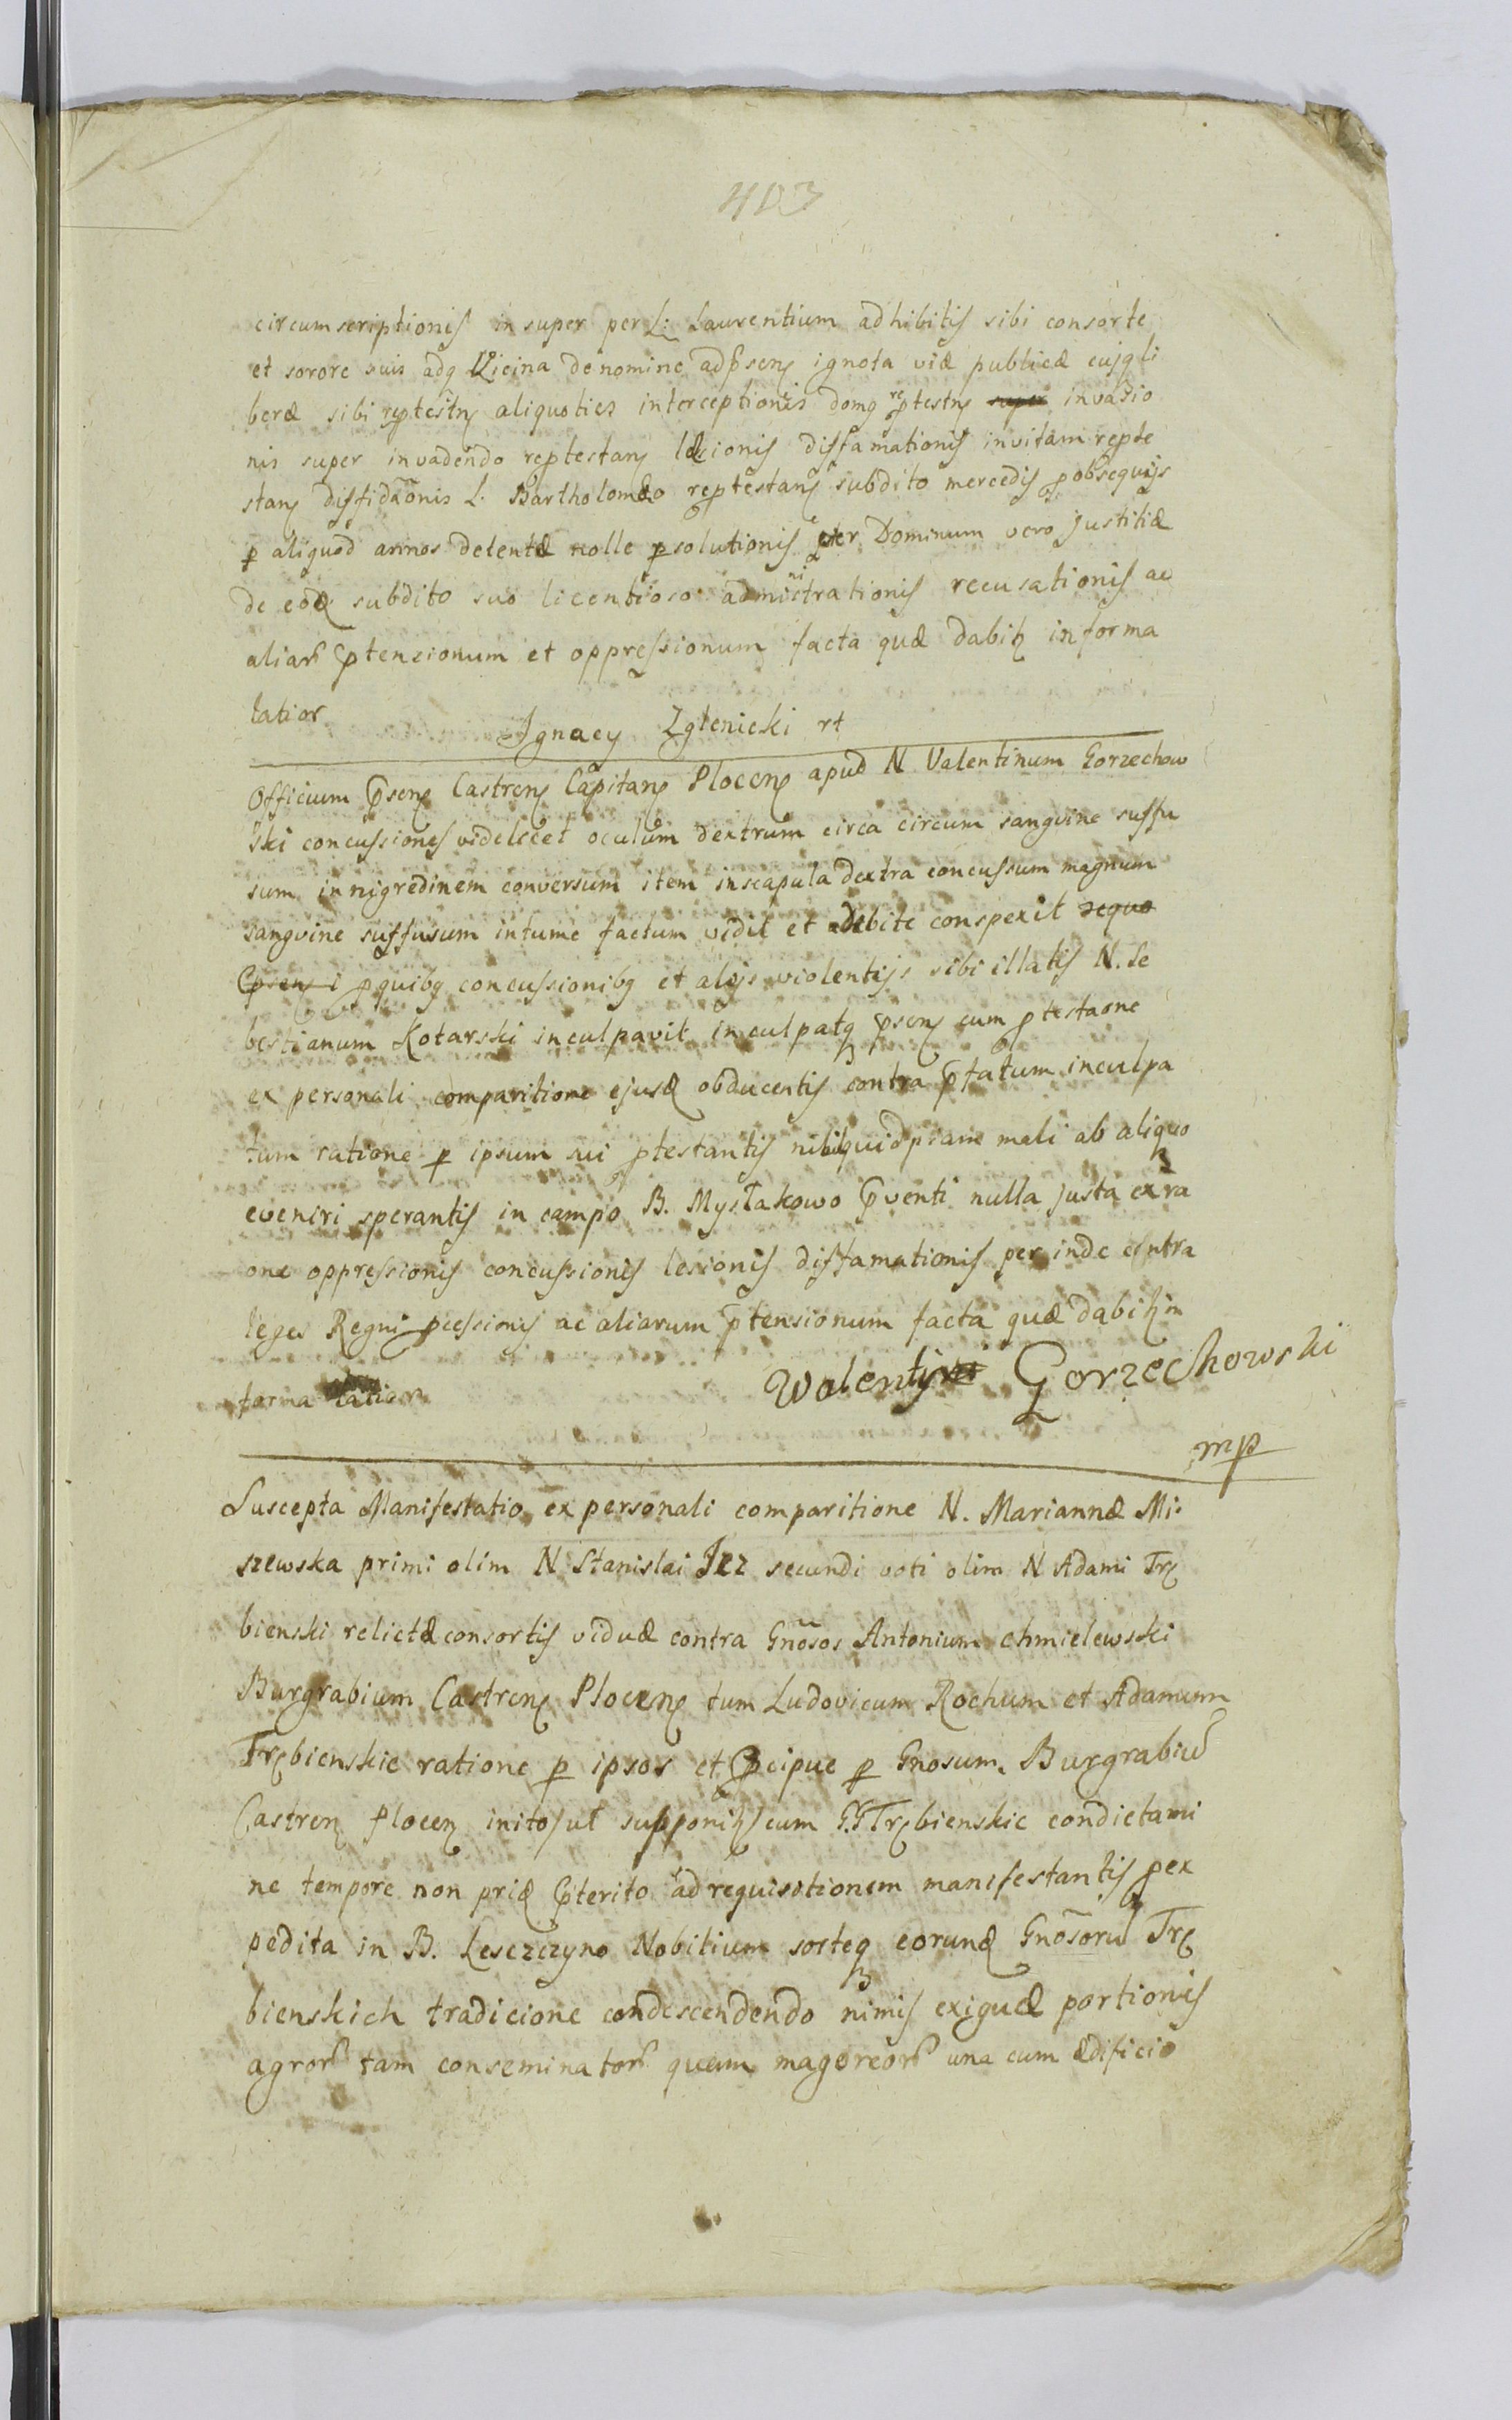 403
circumscriptionis insuper per L: Laurentium adhibitis sibi consorte
et sorore suis adq Vicina de nomine adpsens ignota viæ publicæ cujqli
beræ sibi reptestns aliquoties interceptionis domq reptestns super invasio
nis super invadendo reptestans læsionis diffamationis invitam repte
stans diffidaonis L. Bartholomæo reptestans subdito mercedis p obsequijs
p aliquod annos detentæ nolle psolutionis per Dominum vero justitiæ
de eodē subdito suo licentioso administrationis recusationis ac
aliar ptensionum et oppressionum facta quæ dabitr in forma
latior
Ignacy Zglenicki rt
Officium psens Castrens Capitans Plocens apud N Valentinum Gorzechow
ski concussiones videlicet oculum dextrum circa circum sangvine suffu
sum in nigredinem conversum item in scapula dextra concussum magnum
sangvine suffusum intume factum vidit et debite conspexit sequo
psens i p quibq concussionibq et alijs violentijs sibi illatis N. Se
bestianum Kotarski inculpavit inculpatq psens cum ptestaone
ex personali comparitione ejusd obducentis contra pfatum inculpa
tum ratione p ipsum sui ptestantis nihil quidpiam mali ab aliquo
eveniri sperantis in campo B. Mysłakowo pventi nulla justa ex ra
one oppressionis concussionis lesionis diffamationis per inde contra
leges Regni pcessionis ac aliarum ptensionum facta quæ dabitr in
forma latior
Walenty Gorzechowski
mp
Suscepta Manifestatio ex personali comparitione N. Mariannæ Mi
szewska primi olim N Stanislai Jez secundi voti olim N Adami Trę
bienski relictæ consortis viduæ contra Gnosos Antonium Chmielewski
Burgrabium Castrens Plocens tum Ludovicum Rochum et Adamum
Trębienskie ratione p ipsos et pcipue p Gnosum Burgrabiū
Castren Plocen inito/ut supponitr/cum G.G Trębienskie condictami
ne tempore non pridē pterito ad requisitionem manifestantis p ex
pedita in B. Lesczczyno Nobilium sorteq eorund Gnosorū Trę
bienskich tradicione condescendendo nimis exiguæ portionis
agror tam conseminator quam magereor una cum ædificio